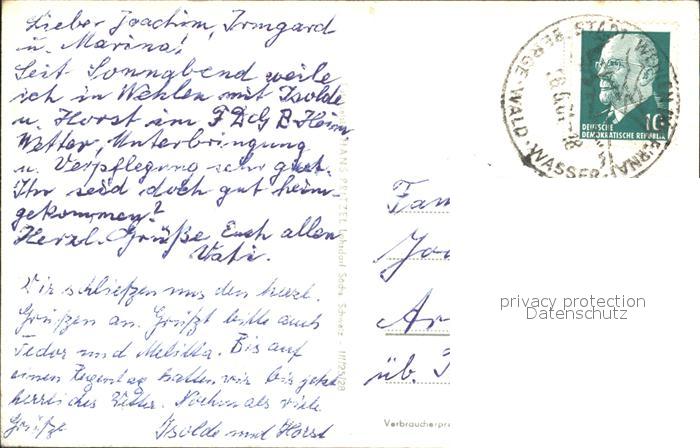 Lieber Joachim, Irmgard
u. Marina!
Seit Sonnabend weile
ich in Wehlen mit Isolde
u. Horst im FDGB Heim
Wetter, Unterbringung
u. Verpflegung sehr gut.
Ihr seid doch gut heim-
gekommen?
Herzl. Grüße Euch allen
Vati.
Wir schließen uns den herzl.
Grüßen an. Grüßt bitte auch
Fedor und Melitta. Bis auf
einen Regentag hatten wir bis jetzt
herrliches Wetter. Nochmals viele
Grüße Isolde und Horst
HANS PRETZEL
III/25/28
10
DEUTSCHE
DEMOKRATISCHE REPUBLIK
STADT WEHLEN
BERGE·WALD·WASSER
Fam
Jo
privacy protection
Datenschutz
Ar
üb.
Verbraucherpre